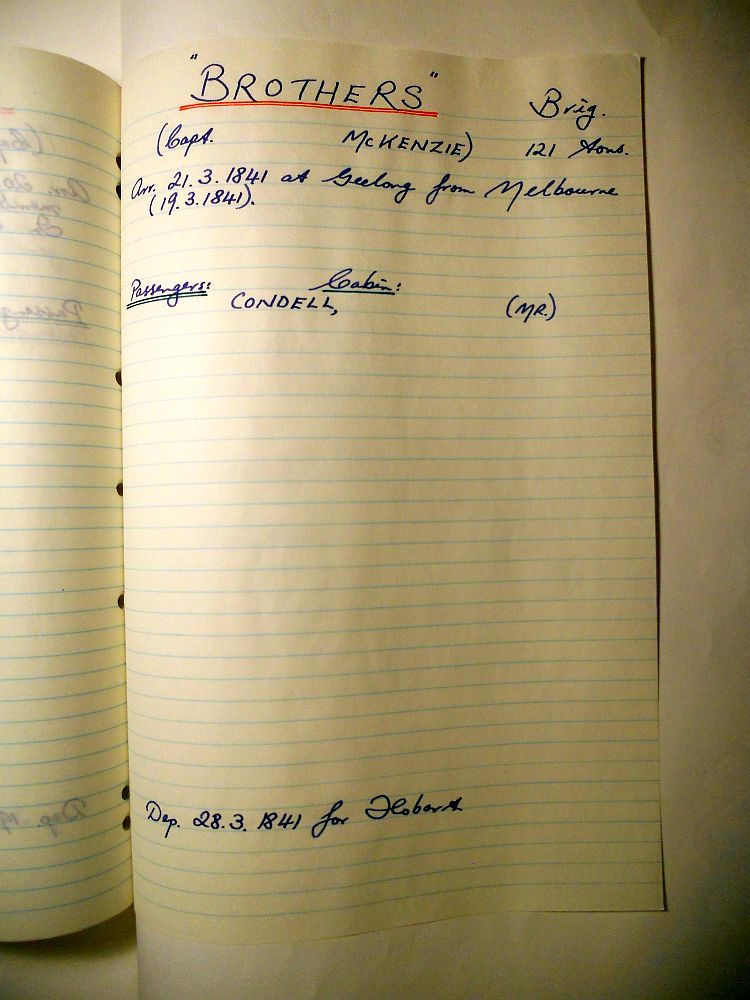 "BROTHERS" Brig.
(Capt. McKENZIE) 121 Tons.
Arr. 21.3.1841 at Geelong from Melbourne
(19.3.1841).
Passengers: Cabin:
CONDELL, (MR.)
Dep. 28.3.1841 for Hobart